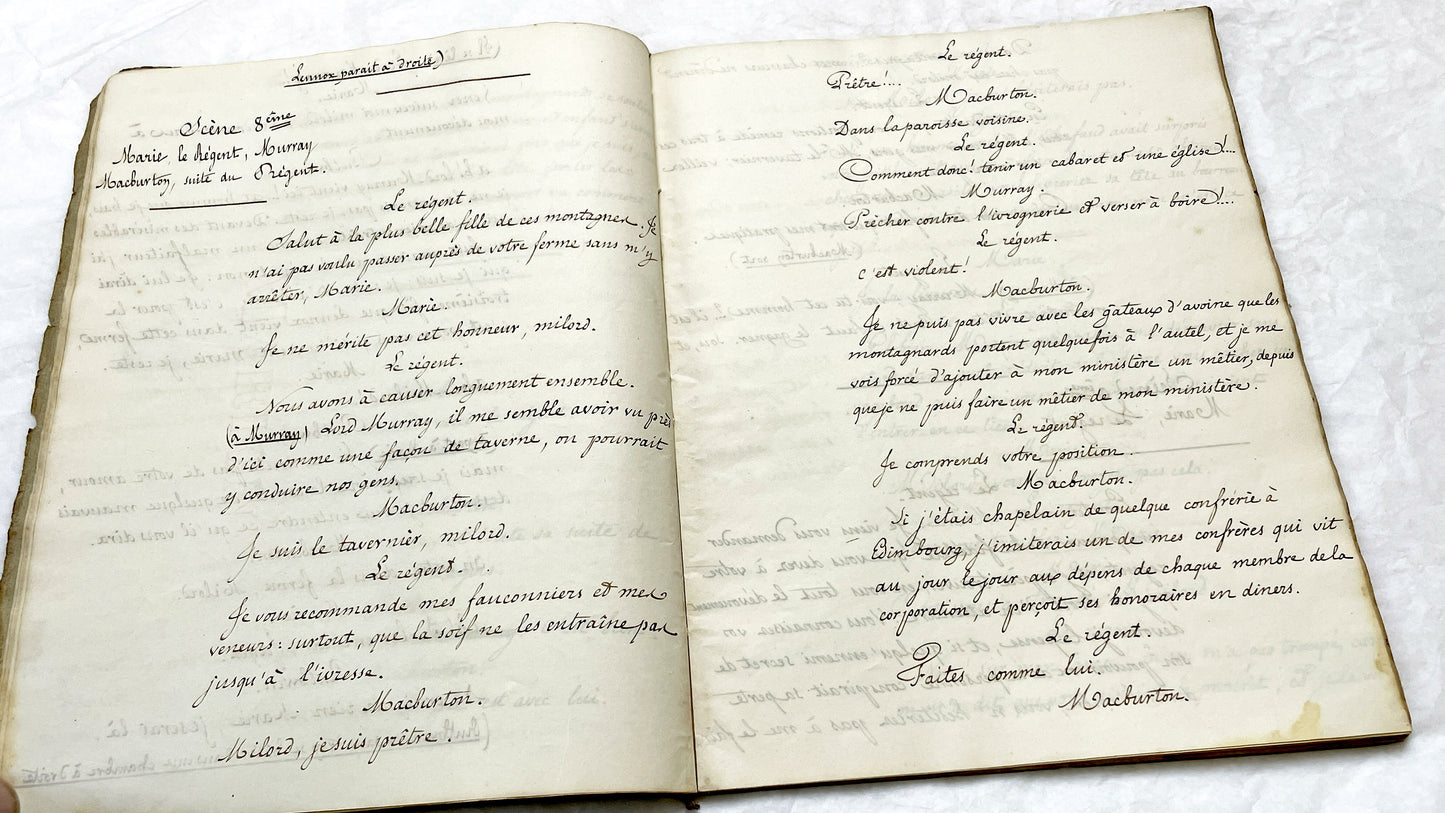 Lennox parait à droite)
Scène 8ème
Marie, le Régent, Murray
Macburton, suite du Régent.
Le régent.
Salut à la plus belle fille de ces montagnes. Je
n'ai pas voulu passer auprès de votre ferme sans m'y
arrêter, Marie.
Marie.
Je ne mérite pas cet honneur, milord.
Le régent.
Nous avons à causer longuement ensemble.
(à Murray) Lord Murray, il me semble avoir vu près
d'ici comme une façon de taverne, on pourrait
y conduire nos gens.
Macburton.
Je suis le tavernier, milord.
Le régent.
Je vous recommande mes fauconniers et mes
veneurs : surtout, que la soif ne les entraîne pas
jusqu'à l'ivresse.
Macburton.
Milord, je suis prêtre.
Le régent.
Prêtre!...
Macburton.
Dans la paroisse voisine.
Le régent.
Comment donc! tenir un cabaret et une église!...
Murray.
Prêcher contre l'ivrognerie et verser à boire!...
Le régent.
c'est violent!
Macburton.
Je ne puis pas vivre avec les gâteaux d'avoine que les
montagnards portent quelquefois à l'autel, et je me
vois forcé d'ajouter à mon ministère un métier, depuis
que je ne puis faire un métier de mon ministère.
Le régent.
Je comprends votre position.
Macburton.
Si j'étais chapelain de quelque confrérie à
Edimbourg, j'imiterais un de mes confrères qui vit
au jour le jour aux dépens de chaque membre de la
corporation, et perçoit ses honoraires en diners.
Le régent.
Faites comme lui.
Macburton.